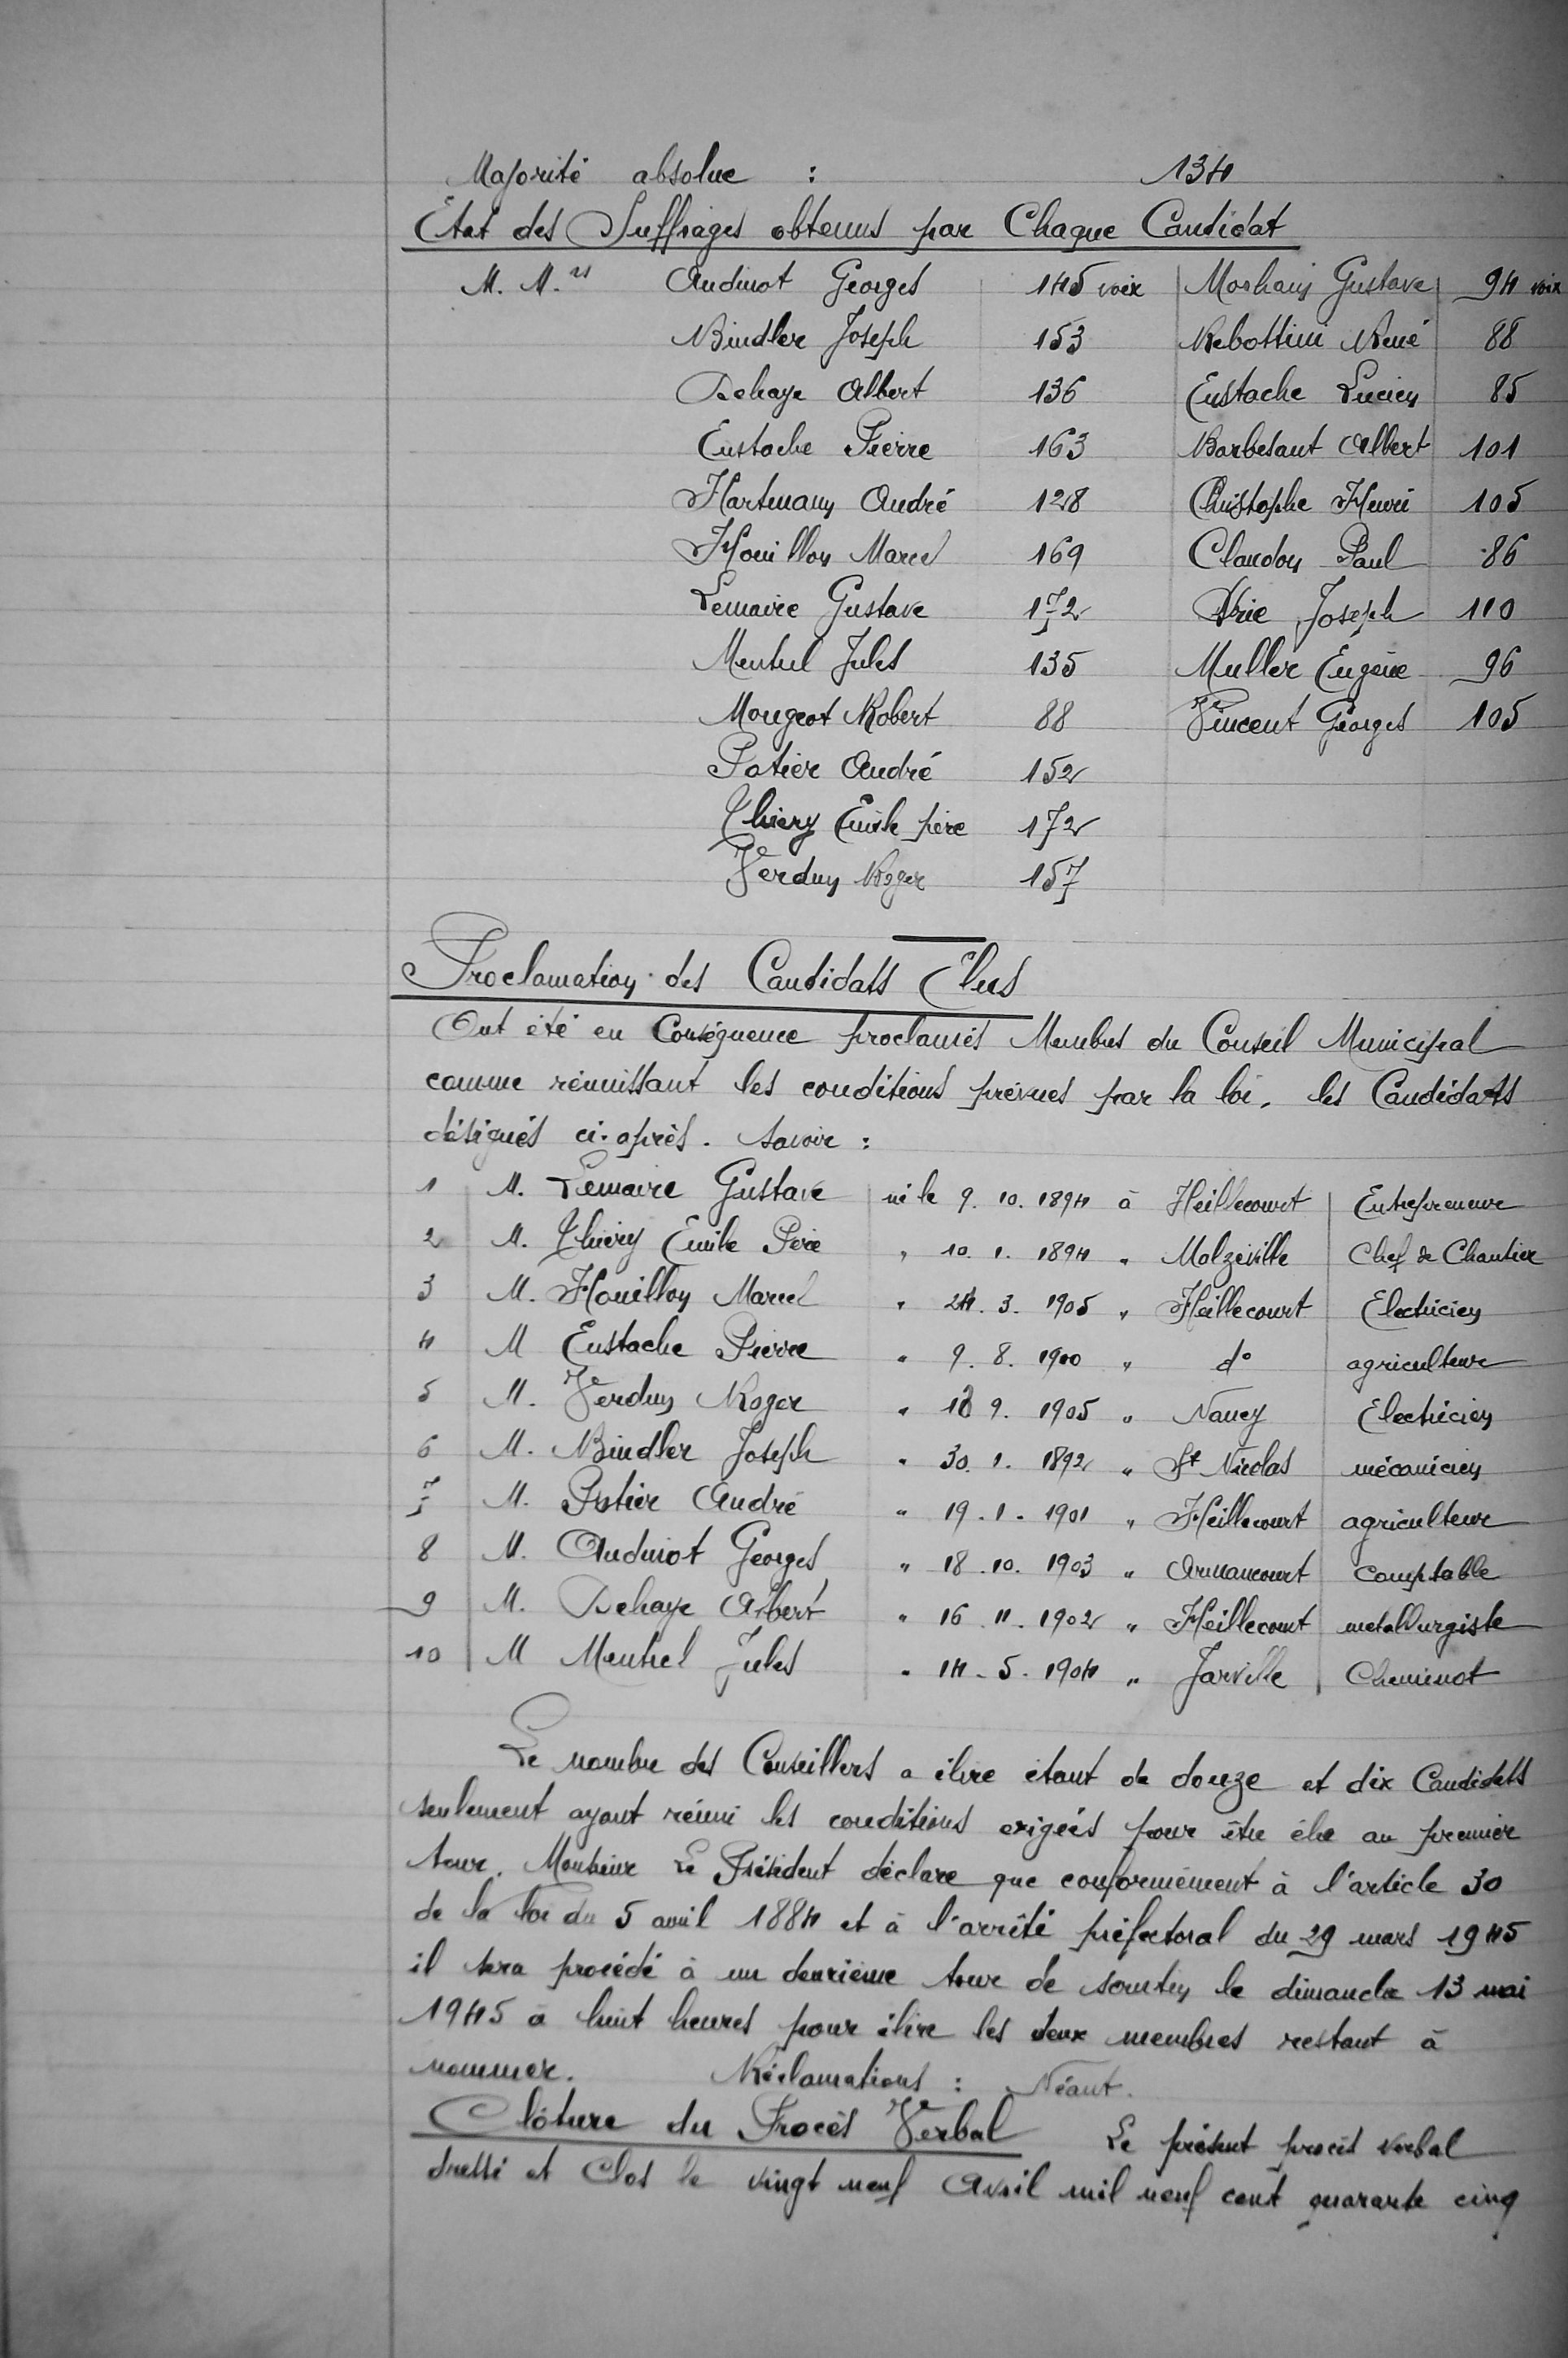 Majorité absolue : 134
Etat des Suffrages obtenus par Chaque Candidat
M. M.rs Audinot Georges 145 voix Morhain Gustave 94 voix
Bindler Joseph 153 Rebottini René 88
Dehaye Albert 136 Eustache Lucien 85
Eustache Pierre 163 Barbesant Albert 101
Hartmann André 128 Christophe Henri 105
Houillon Marcel 169 Claudon Paul 86
Lemaire Gustave 172 Joseph 110
Mentrel Jules 135 Muller Eugène 96
Mougeot Robert 88 Vincent Georges 105
Potier André 152
Thiery Emile père 172
Verdun Roger 157
Proclamation des Candidats Elus
Ont été en Conséquence proclamés Membres du Conseil Municipal
comme réunissant les conditions prévues par la loi, les Candidats
désignés ci-après. savoir :
1 M. Lemaire Gustave né le 9. 10. 1894 à Heillecourt Entrepreneur
2 M. Thiery Emile Père " 10. 1. 1894 " Malzéville Chef de Chantier
3 M. Houillon Marcel " 24. 3. 1905 " Heillecourt Electricien
4 M Eustache Pierre " 9. 8. 1900 " d° agriculteur
5 M. Verdun Roger " 18 9. 1905 " Nancy Electricien
6 M. Bindler Joseph " 30. 1. 1892 " St Nicolas mécanicien
7 M. Potier André " 19. 1. 1901 " Heillecourt agriculteur
8 M. Audinot Georges " 18. 10. 1903 " Armaucourt comptable
9 M. Dehaye Albert " 16. 11. 1902 " Heillecourt metallurgiste
10 M Mentrel Jules " 14. 5. 1904 " Jarville Cheminot
Le nombre des Conseillers a élire étant de douze et dix Candidats
seulement ayant réuni les conditions exigées pour être élu au premier
tour. Monsieur Le Président déclare que conformément à l'article 30
de la loi du 5 avril 1884 et à l'arrêté préfectoral du 29 mars 1945
il sera procédé à un deuxième tour de scrutin le dimanche 13 mai
1945 à huit heures pour élire les deux membres restant à
nommer. Réclamations : Néant.
Clôture du Procès Verbal Le présent procès verbal
dressé et Clos le vingt neuf Avril mil neuf cent quarante cinq